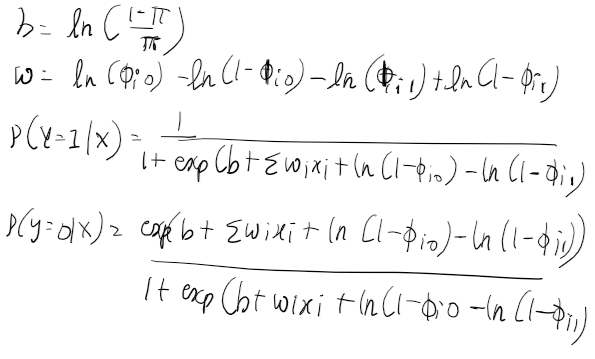 b = ln(\frac{1-π}{π})
w = ln(ϕ_{i0}) - ln(1-ϕ_{i0}) - ln(ϕ_{i1}) + ln(1-ϕ_{i1})
P(Y=1|X) = \frac{1}{1 + exp(b + Σw_ix_i + ln(1-ϕ_{i0}) - ln(1-ϕ_{i1})}
P(y=0|X) = \frac{exp(b + Σw_ix_i + ln(1-ϕ_{i0}) - ln(1-ϕ_{i1}))}{1 + exp(b + w_ix_i + ln(1-ϕ_{i0} - ln(1-ϕ_{i1})}